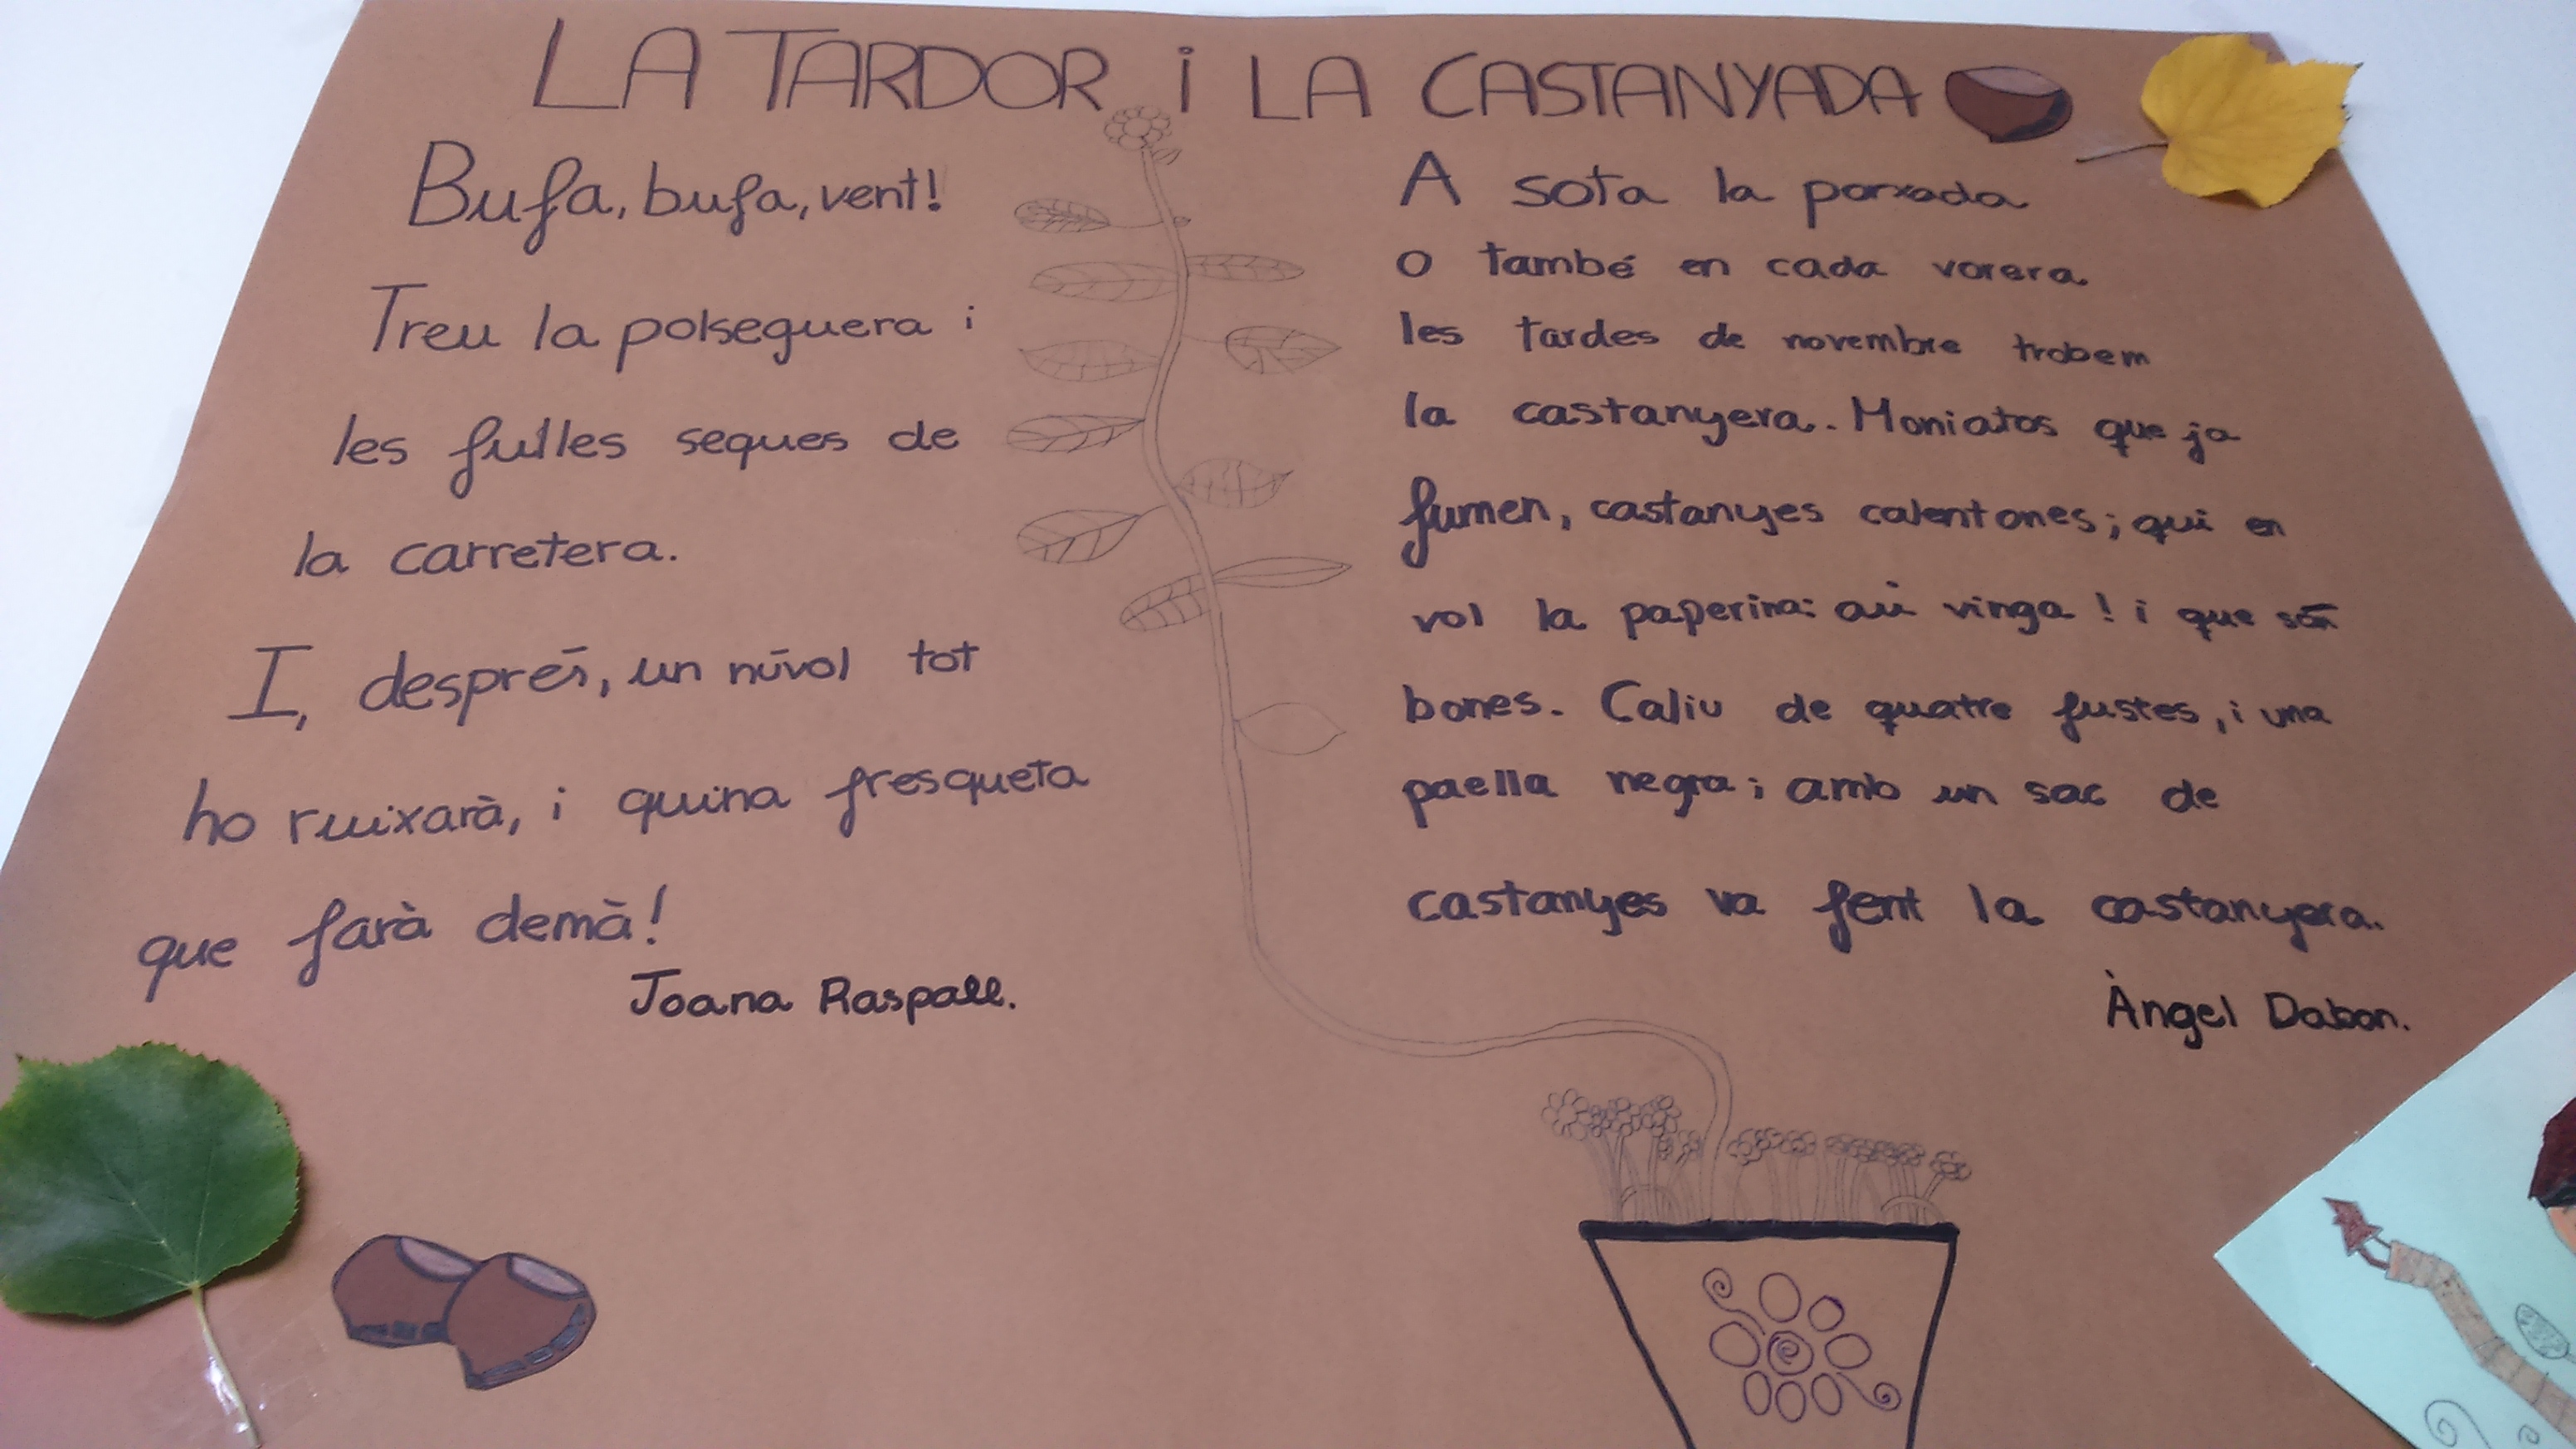 LA TARDOR i LA CASTANYADA
Bufa, bufa, vent!
Treu la polseguera i
les fulles seques de
la carretera.
I, després, un núvol tot
ho ruixarà, i quina fresqueta
que farà demà!
Joana Raspall.
A sota la porxada
o també en cada vorera
les tardes de novembre trobem
la castanyera. Moniatos que ja
fumen, castanyes calentones; qui en
vol la paperina: aü vinga! i que són
bones. Caliu de quatre fustes, i una
paella negra; amb un sac de
castanyes va fent la castanyera.
Àngel Dabon.